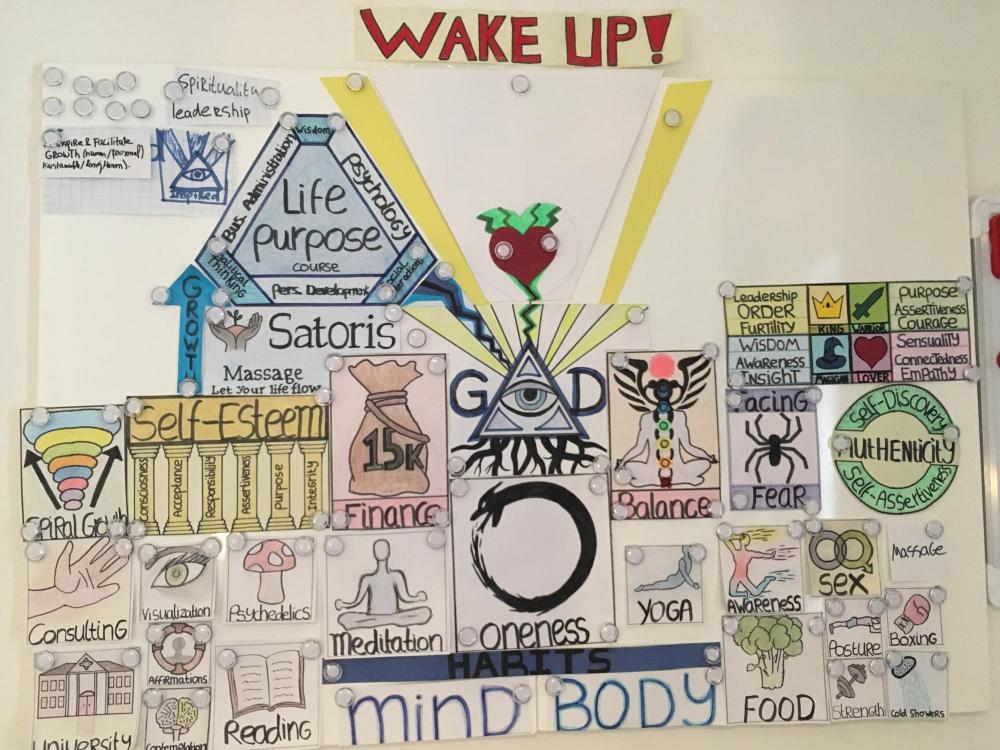 WAKE UP!
Spirituality
leadership
& Facilitate
GROWTH (human/personal)
Inspired
Wisdom
Bus. Administration
Psychology
Life
purpose
COURSE
Political
Thinking
Social
Pers. Development
GROWTH
Satoris
Massage
Let your life flow
Leadership
ORDER
FURTILITY
KING
WARRIOR
PURPOSE
ASSERTIVENESS
COURAGE
WISDOM
AWARENESS
INSIGHT
MAGICIAN
LOVER
SENSUALITY
CONNECTEDNESS
EMPATHY
GOD
Self-Esteem
Consciousness
Acceptance
Responsibility
Assertiveness
Purpose
Integrity
15K
Finance
Balance
FacinG
FEAR
Self-Discovery
AUTHENTICITY
Self-Assertiveness
Spiral Growth
ConsultinG
Visualization
Psychedelics
Meditation
oneness
YOGA
AWareness
SEX
Massage
Posture
BoxinG
AFFirmations
University
Contemplation
ReadinG
HABITS
minD
BODY
FOOD
Strength
Cold showers